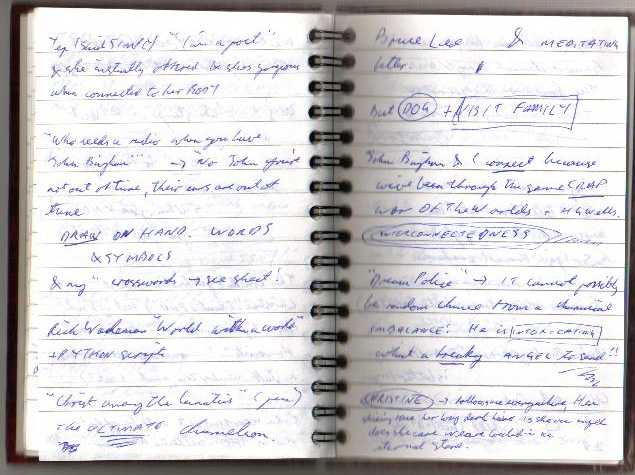 Yep I said SIMPLY "I'm a poet"
& she instantly offered be she's gorgeous
when connected to her BODY
"Who needs a radio when you have
John Bingham" → "No John you're
not out of tune, their ears are out of
tune
DRAW ON HAND. WORDS
& SYMBOLS
& my crosswords → see sheet!
Rick Wakeman "World within a world"
+ PYTHON scripts
"Christ among the lunatics" (pen)
The ULTIMATE chameleon.
Bruce Lee & MEDITATING
letter
But DOG + VISIT FAMILY
John Bingham & I connect because
we've been through the same CRAP
War OF The Worlds + H G Wells.
INTERCONNECTEDNESS
"Dream Police" → IT cannot possibly
be random chance from a chemical
IMBALANCE! He is INTOXICATING
what a breaking ANGEL to send!!
CHRISTINE →
her long dark hair is she an angel
does she care we are locked in an
eternal